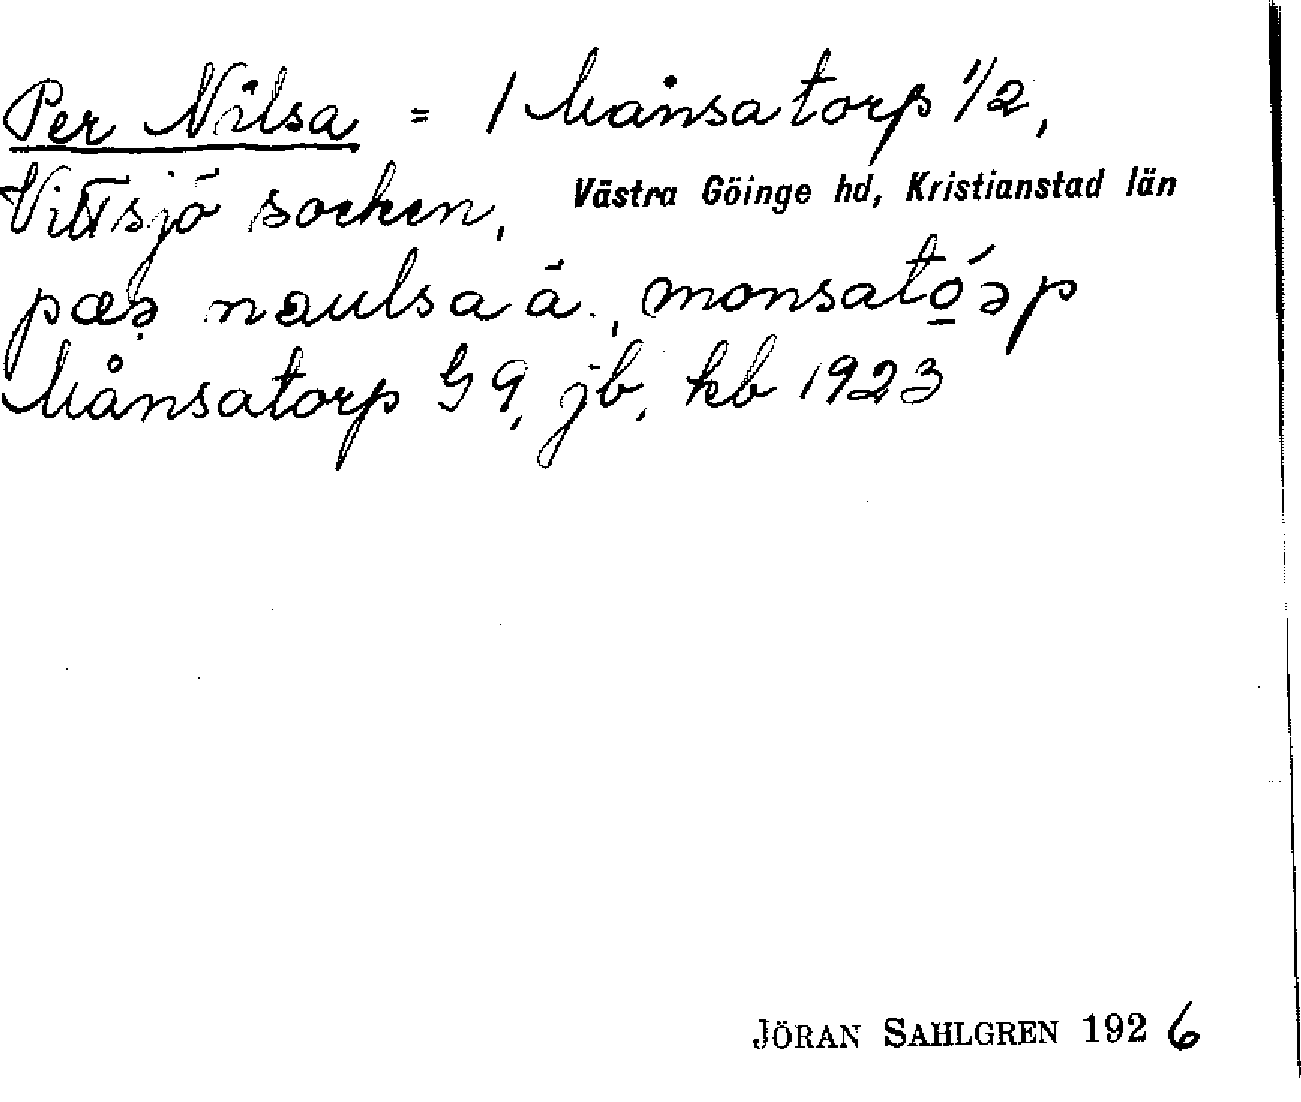 Per Nilsa = 1 Månsatorp 1/2,
Vittsjö socken, Västra Göinge hd, Kristianstad län
pæə naulsa ä., monsatóəp
Månsatorp G9, jb, kb 1923
JÖRAN SAHLGREN 1926